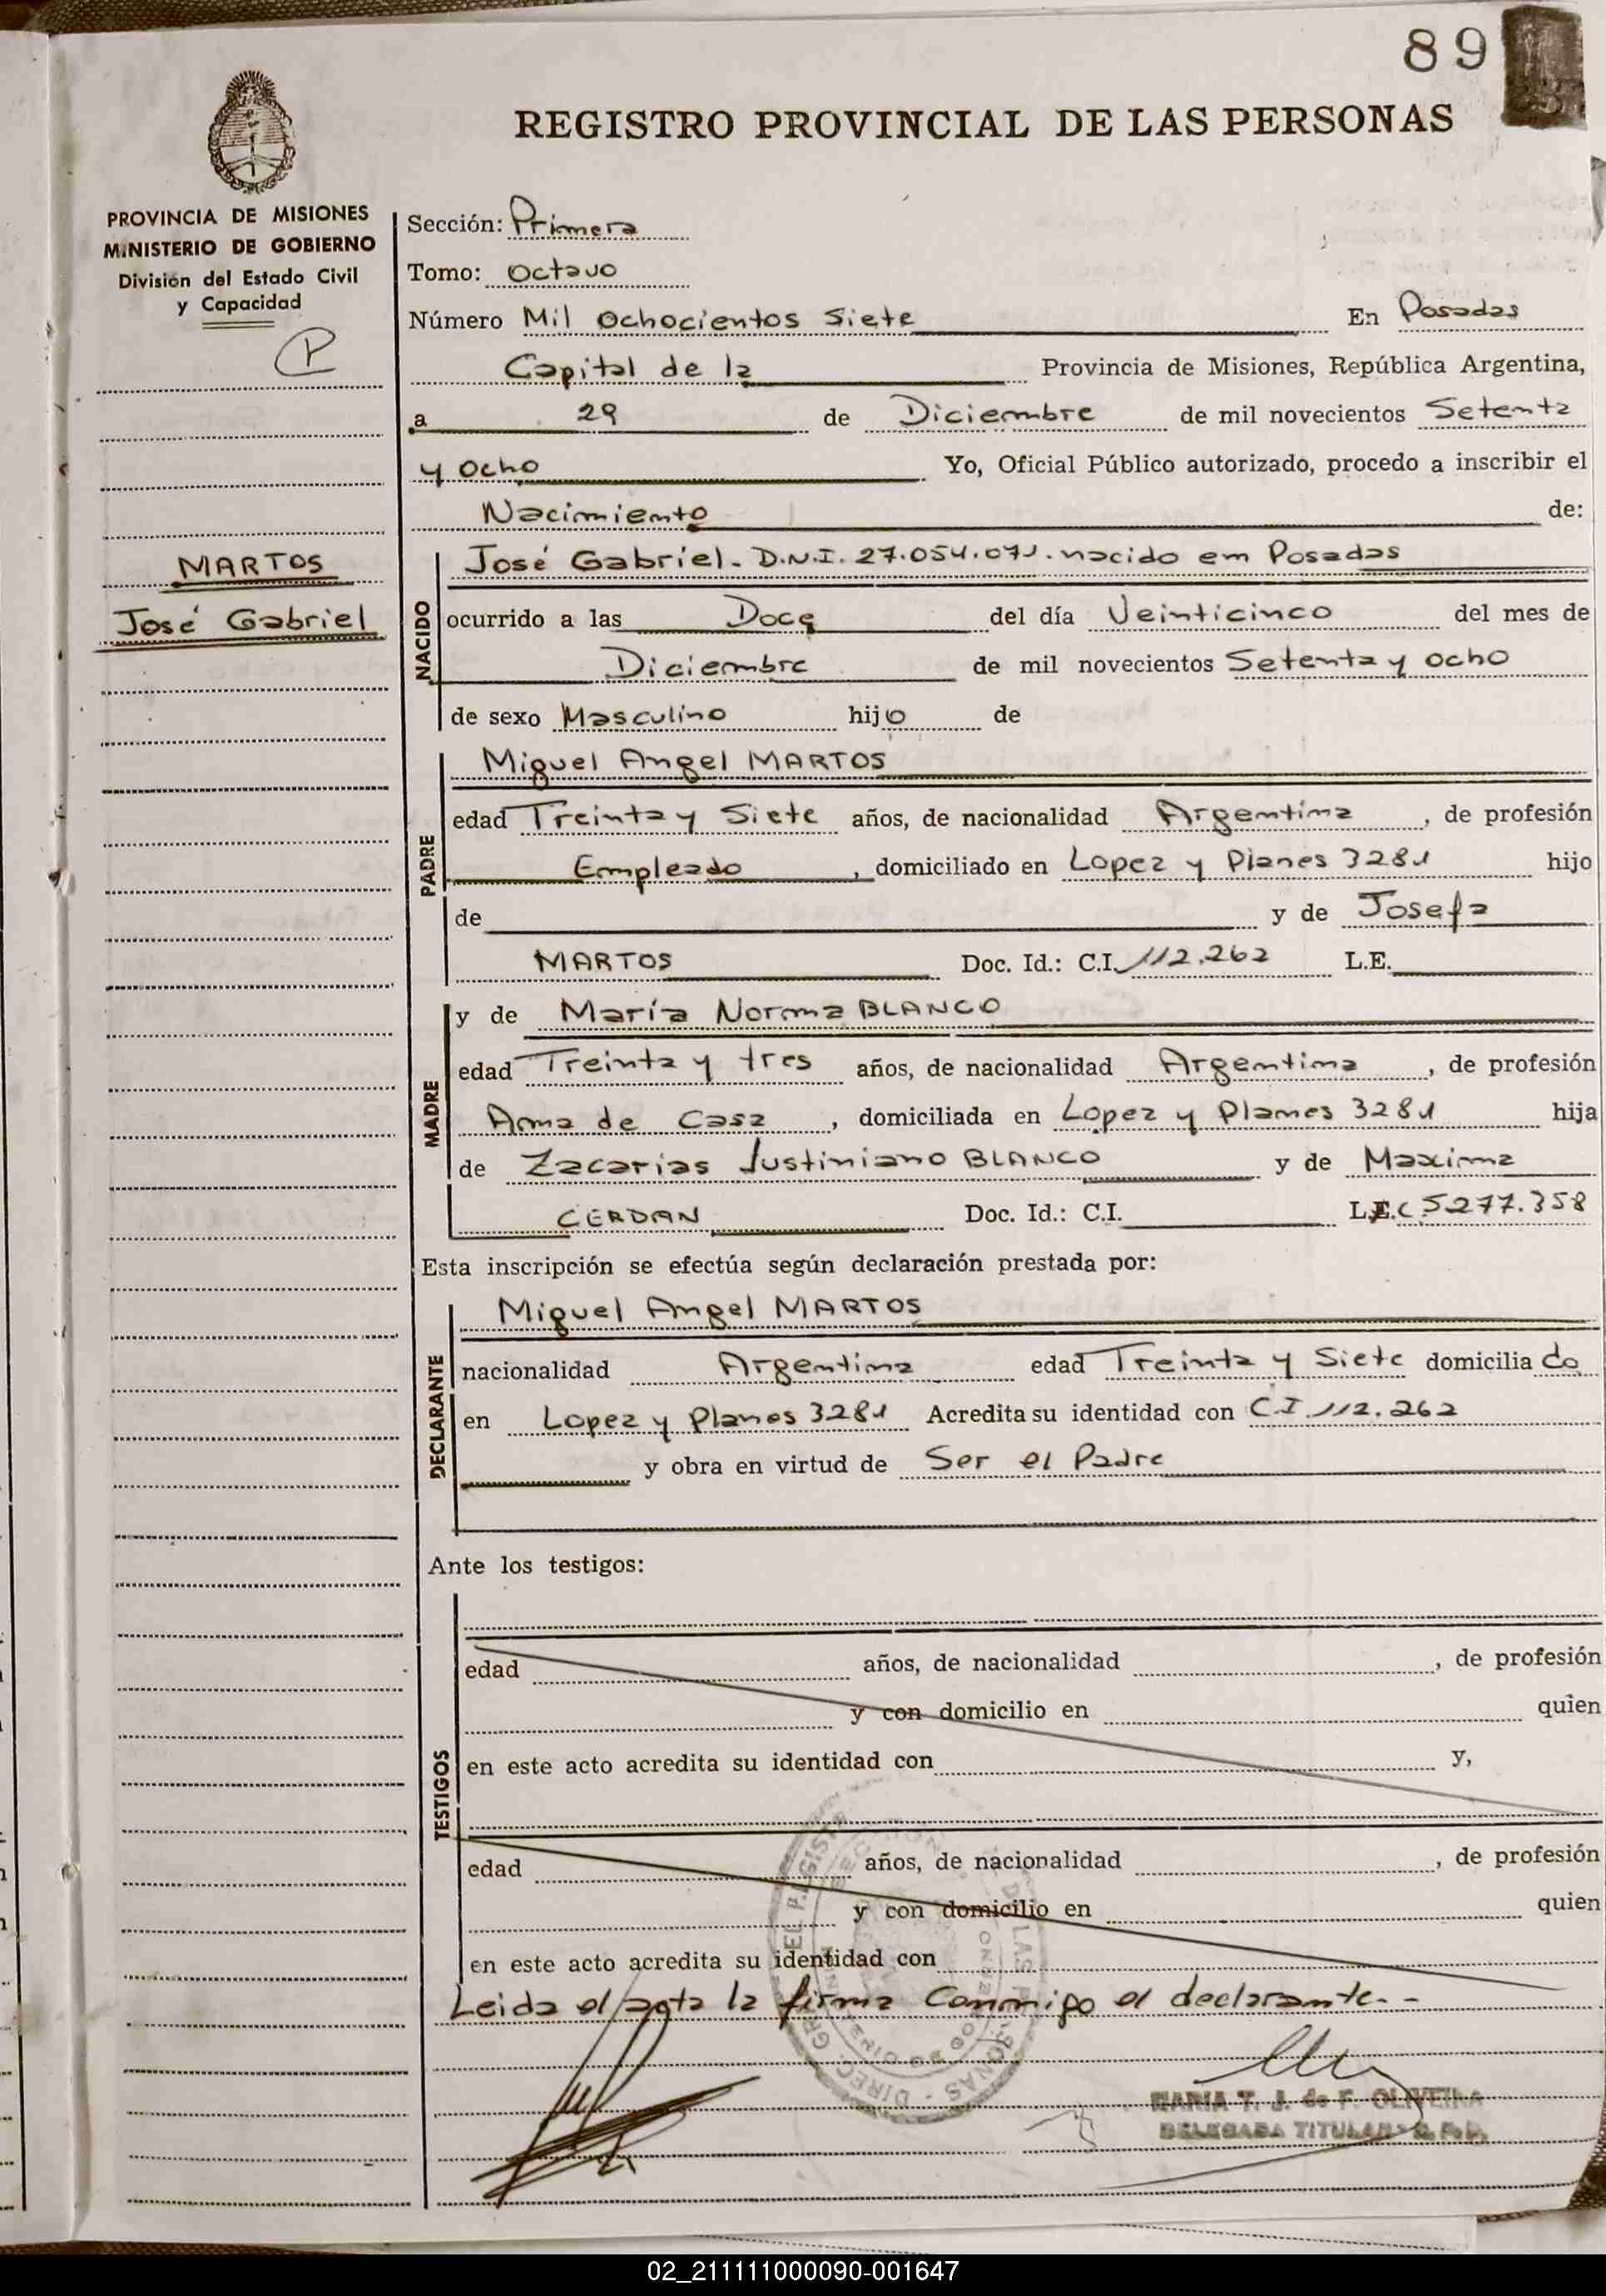 89
REGISTRO PROVINCIAL DE LAS PERSONAS
PROVINCIA DE MISIONES
MINISTERIO DE GOBIERNO
División del Estado Civil
y Capacidad
P
MARTOS
José Gabriel
Sección: Primera
Tomo: Octavo
Número Mil Ochocientos Siete En Posadas
Capital de la Provincia de Misiones, República Argentina,
a 29 de Diciembre de mil novecientos Setenta
y Ocho Yo, Oficial Público autorizado, procedo a inscribir el
Nacimiento de:
NACIDO
José Gabriel. D.N.I. 27.054.071. nacido en Posadas
ocurrido a las Doce del día Veinticinco del mes de
Diciembre de mil novecientos Setenta y Ocho
de sexo Masculino hijo de
PADRE
Miguel Angel MARTOS
edad Treinta y Siete años, de nacionalidad Argentina, de profesión
Empleado, domiciliado en Lopez y Planes 3281 hijo
de y de Josefa
MARTOS Doc. Id.: C.I. 112.262 L.E.
MADRE
y de María Norma BLANCO
edad Treinta y tres años, de nacionalidad Argentina, de profesión
Ama de Casa, domiciliada en Lopez y Planes 3281 hija
de Zacarias Justiniano BLANCO y de Maxima
CERDAN Doc. Id.: C.I. L.C. 5277.358
Esta inscripción se efectúa según declaración prestada por:
DECLARANTE
Miguel Angel MARTOS
nacionalidad Argentina edad Treinta y Siete domiciliado
en Lopez y Planes 3281 Acredita su identidad con C.I. 112.262
y obra en virtud de Ser el Padre
Ante los testigos:
TESTIGOS
edad años, de nacionalidad , de profesión
y con domicilio en quien
en este acto acredita su identidad con y,
edad años, de nacionalidad , de profesión
y con domicilio en quien
en este acto acredita su identidad con
Leida el acta la firma Conmigo el declarante.-
MARIA T. J. de F. OLIVEIRA
DELEGADA TITULAR R.P.P.
02_211111000090-001647